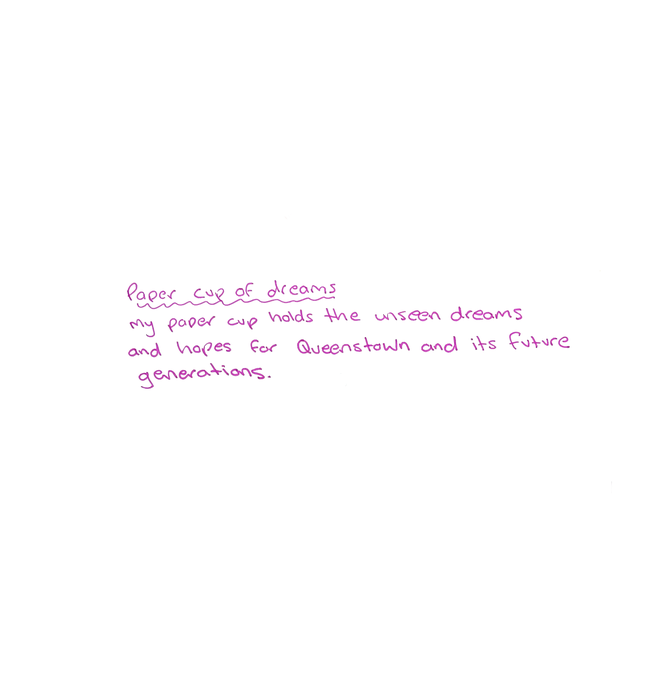 Paper cup of dreams
my paper cup holds the unseen dreams
and hopes for Queenstown and its future
generations.